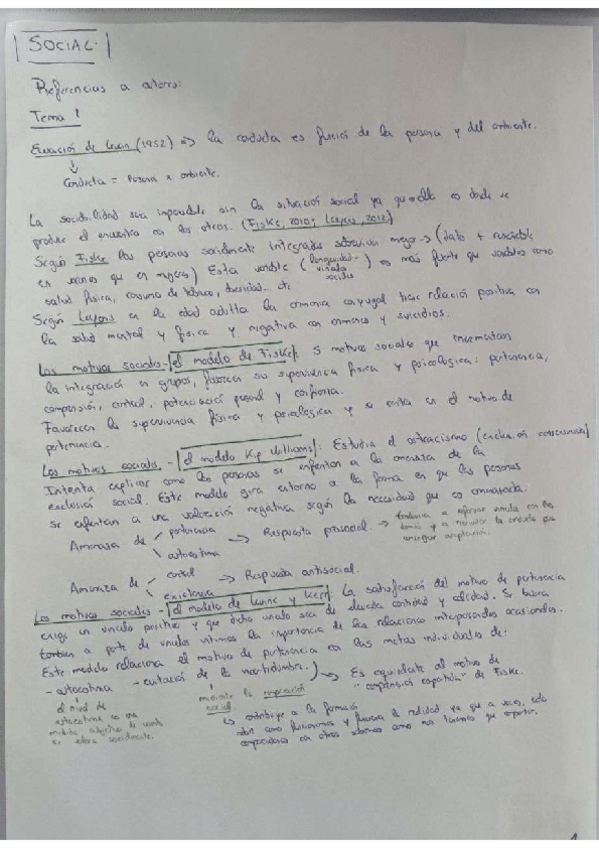 SOCIAL.
Referencias a autores:
Tema 1
Ecuación de Lewin (1952) => la conducta es función de la persona y del ambiente.
Conducta = Persona x ambiente.
La sociabilidad sería imposible sin la situación social ya que ella es donde se
produce el encuentro con los otros. (Fiske, 2010; Leyens, 2012)
Según Fiske las personas socialmente integradas sobreviven mejor -> (dato + 
en varones que en mujeres) Esta variable (longevidad - vínculos sociales) es más fuerte que variables como
salud física, consumo de tabaco, obesidad... etc
Según Leyens en la edad adulta la armonía conyugal tiene relación positiva con
la salud mental y física y negativa con y suicidios.
Los motivos sociales - el modelo de Fiske: 5 motivos sociales que incrementan
la integración en grupos, favorecen su supervivencia física y psicológica: pertenencia,
comprensión, control, potenciación personal y confianza.
Favorecen la supervivencia física y psicológica y se centra en el motivo de
pertenencia.
Los motivos sociales - el modelo Kip Williams: Estudia el ostracismo (exclusión
Intenta explicar como las personas se enfrentan a la amenaza de la
exclusión social. Este modelo gira entorno a la forma en que las personas
se enfrentan a una valoración negativa según la necesidad que es amenazada:
Amenaza de pertenencia
autoestima -> Respuesta prosocial. -> tendencia a reforzar vínculo con los
demás y a la conducta para
conseguir aceptación.
Amenaza de control
existencia -> Respuesta antisocial.
Los motivos sociales - el modelo de Levine y Kerr: La satisfacción del motivo de pertenencia
exige un vínculo positivo y que dicho vínculo sea de elevada cantidad y calidad. Se busca
también a parte de vínculos íntimos la importancia de las relaciones interpersonales ocasionales.
Este modelo relaciona el motivo de pertenencia con las metas individuales de:
- autoestima - evitación de la incertidumbre.) -> Es equivalente al motivo de
"comprensión compartida" de Fiske.
el nivel de
autoestima es una
medida subjetiva de
se valora socialmente.
mediante la comparación
social
contribuye a la formación
 la realidad ya que a veces, solo
 con otros sabemos como nos tenemos que comportar.
1